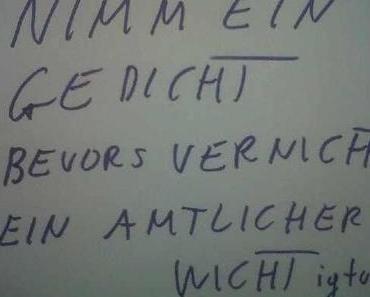 NIMM EIN
GEDICHT
BEVORS VERNICH
EIN AMTLICHER
WICHTigtu